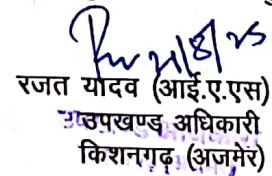 21/8/25
रजत यादव (आई.ए.एस)
उपखण्ड अधिकारी
किशनगढ़ (अजमेर)